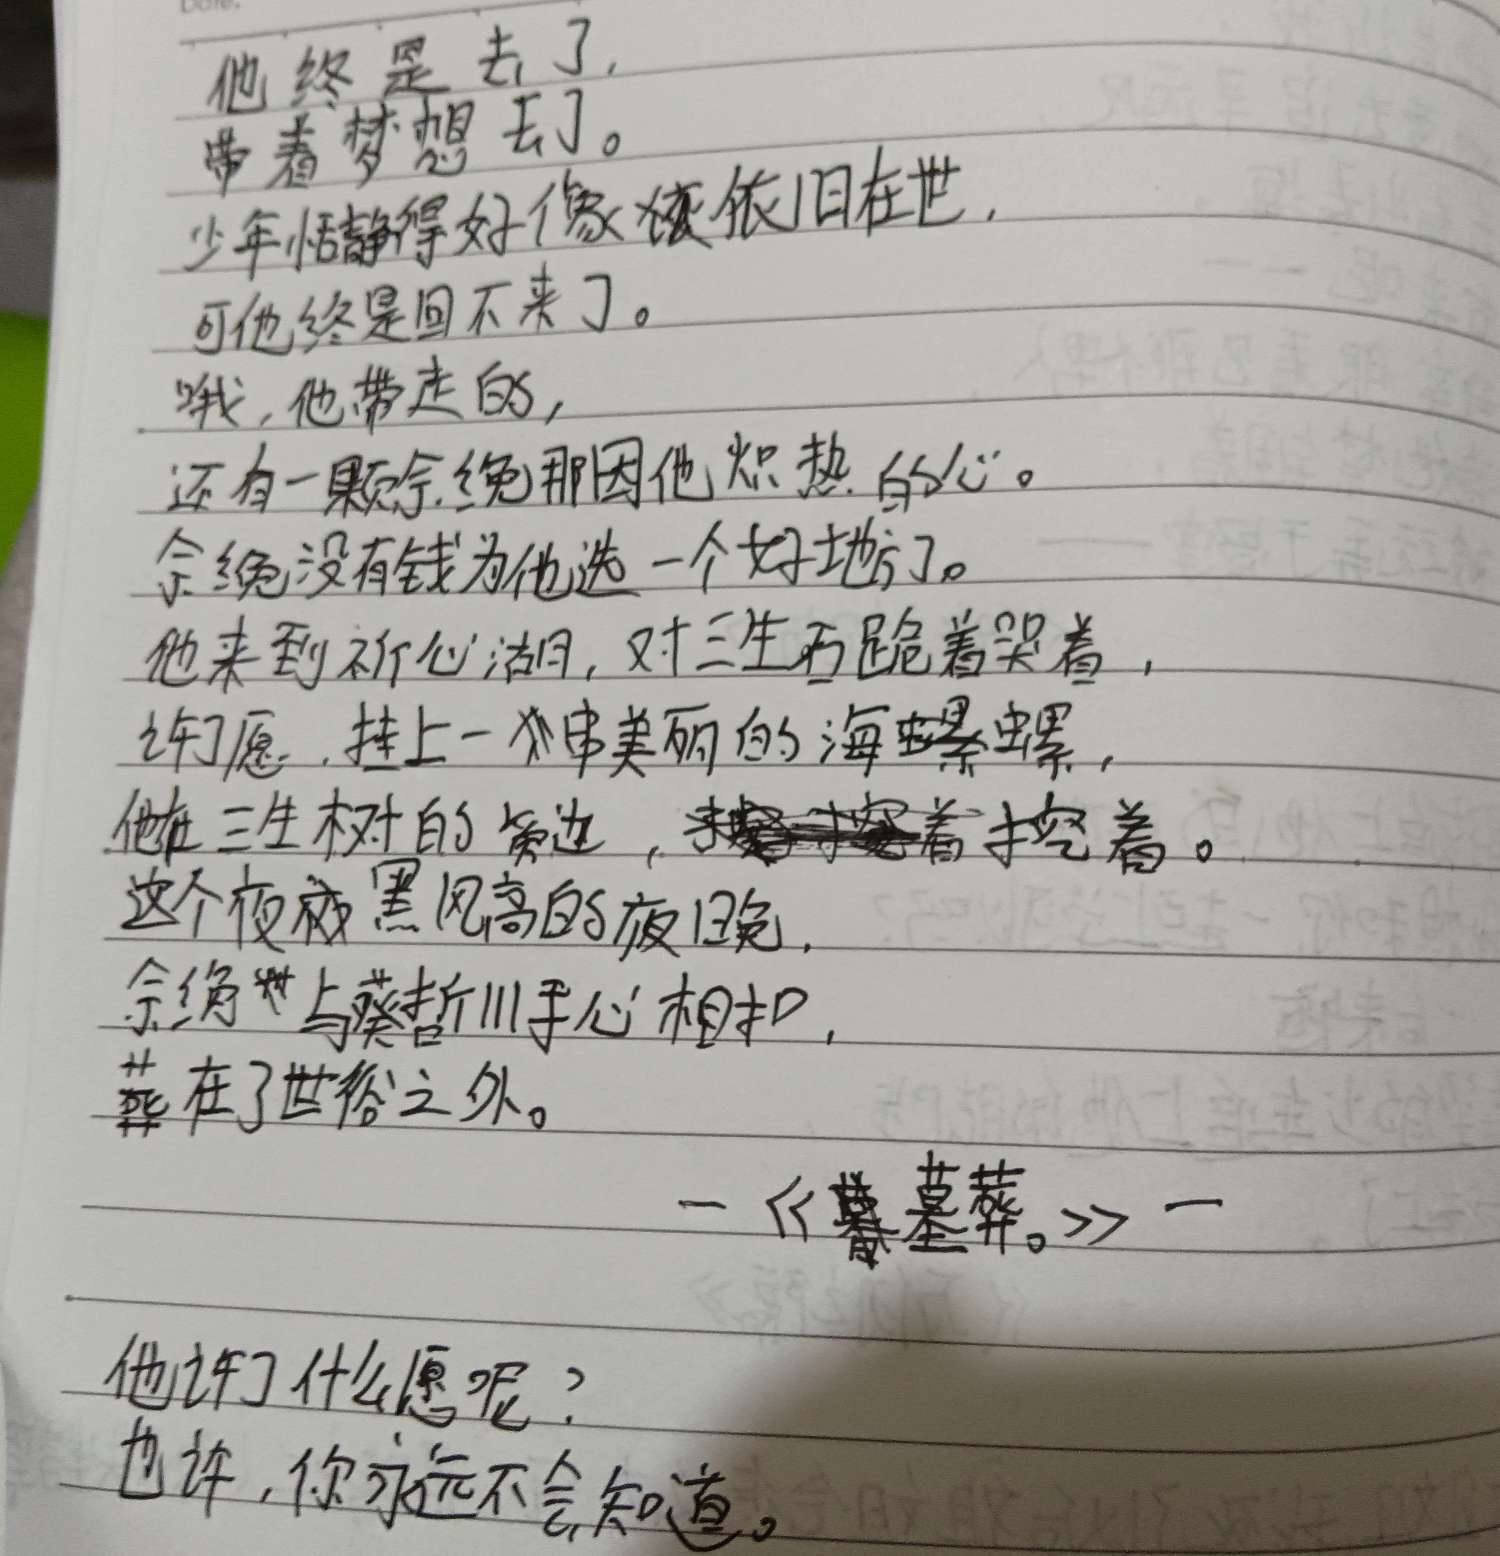 他终是去了,
带着梦想去了。
少年恬静得好像依旧在世,
可他终是回不来了。
哦,他带走的,
还有一颗佘绝那因他炽热的心。
佘绝没有钱为他选一个好地方了。
他来到祈心湖,对三生石跪着哭着,
许了愿,挂上一串美丽的海螺,
他在三生树的旁边,挖着。
这个夜黑风高的夜晚,
佘绝与葵哲川手心相扣,
葬在了世俗之外。
—《墓葬。》—
他许了什么愿呢?
也许,你永远不会知道。